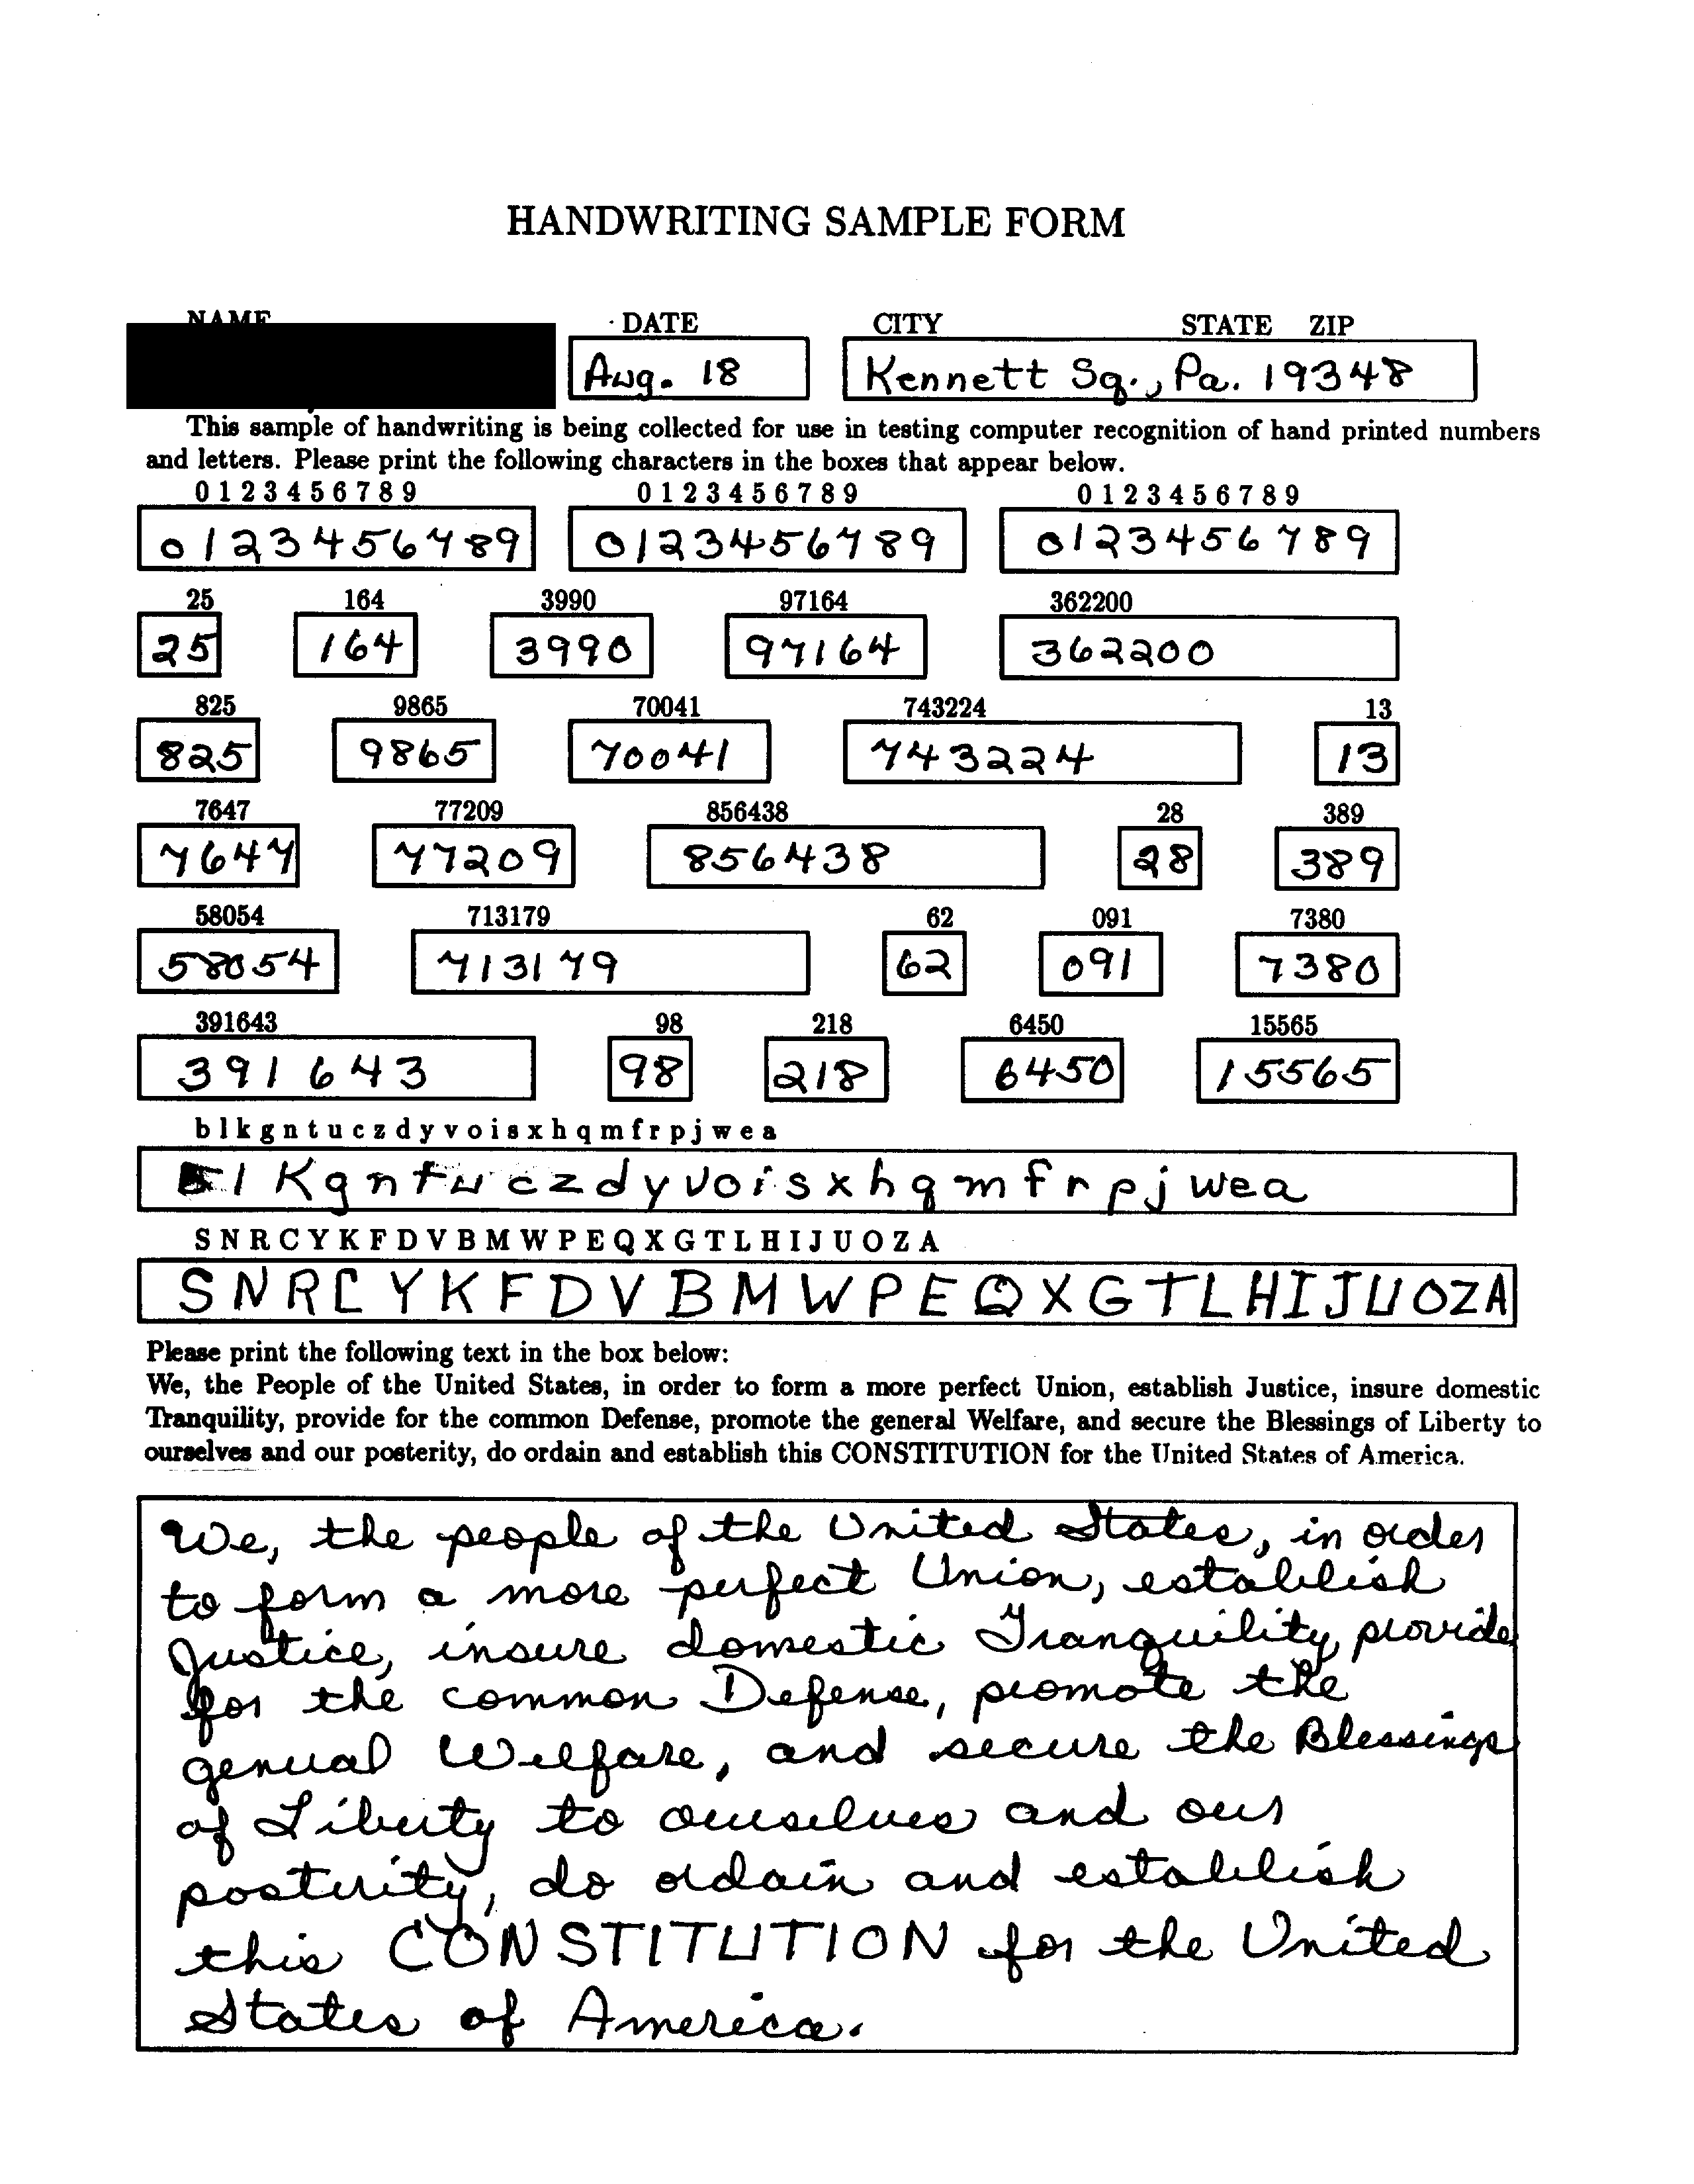 HANDWRITING SAMPLE FORM
NAME DATE CITY STATE ZIP
Aug. 18 Kennett Sq., Pa. 19348
This sample of handwriting is being collected for use in testing computer recognition of hand printed numbers
and letters. Please print the following characters in the boxes that appear below.
0 1 2 3 4 5 6 7 8 9 0 1 2 3 4 5 6 7 8 9 0 1 2 3 4 5 6 7 8 9
0123456789 0123456789 0123456789
25 164 3990 97164 362200
25 164 3990 97164 362200
825 9865 70041 743224 13
825 9865 70041 743224 13
7647 77209 856438 28 389
7647 77209 856438 28 389
58054 713179 62 091 7380
58054 713179 62 091 7380
391643 98 218 6450 15565
391643 98 218 6450 15565
b l k g n t u c z d y v o i s x h q m f r p j w e a
b l K g n t u c z d y v o i s x h q m f r p j w e a
S N R C Y K F D V B M W P E Q X G T L H I J U O Z A
S N R C Y K F D V B M W P E Q X G T L H I J U O Z A
Please print the following text in the box below:
We, the People of the United States, in order to form a more perfect Union, establish Justice, insure domestic
Tranquility, provide for the common Defense, promote the general Welfare, and secure the Blessings of Liberty to
ourselves and our posterity, do ordain and establish this CONSTITUTION for the United States of America.
We, the people of the United States, in order
to form a more perfect Union, establish
Justice, insure domestic Tranquility, provide
for the common Defense, promote the
general Welfare, and secure the Blessings
of Liberty to ourselves and our
posterity, do ordain and establish
this CONSTITUTION for the United
States of America.